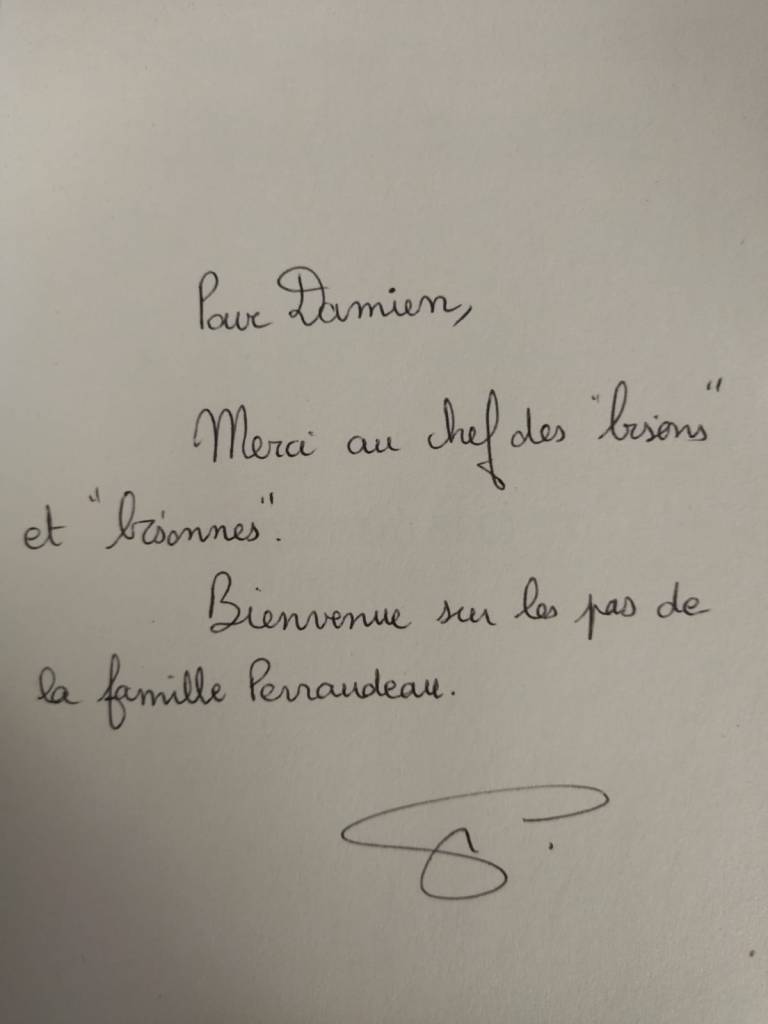 Pour Damien,
Merci au chef des "bisons"
et "bisonnes".
Bienvenue sur les pas de
la famille Perraudeau.